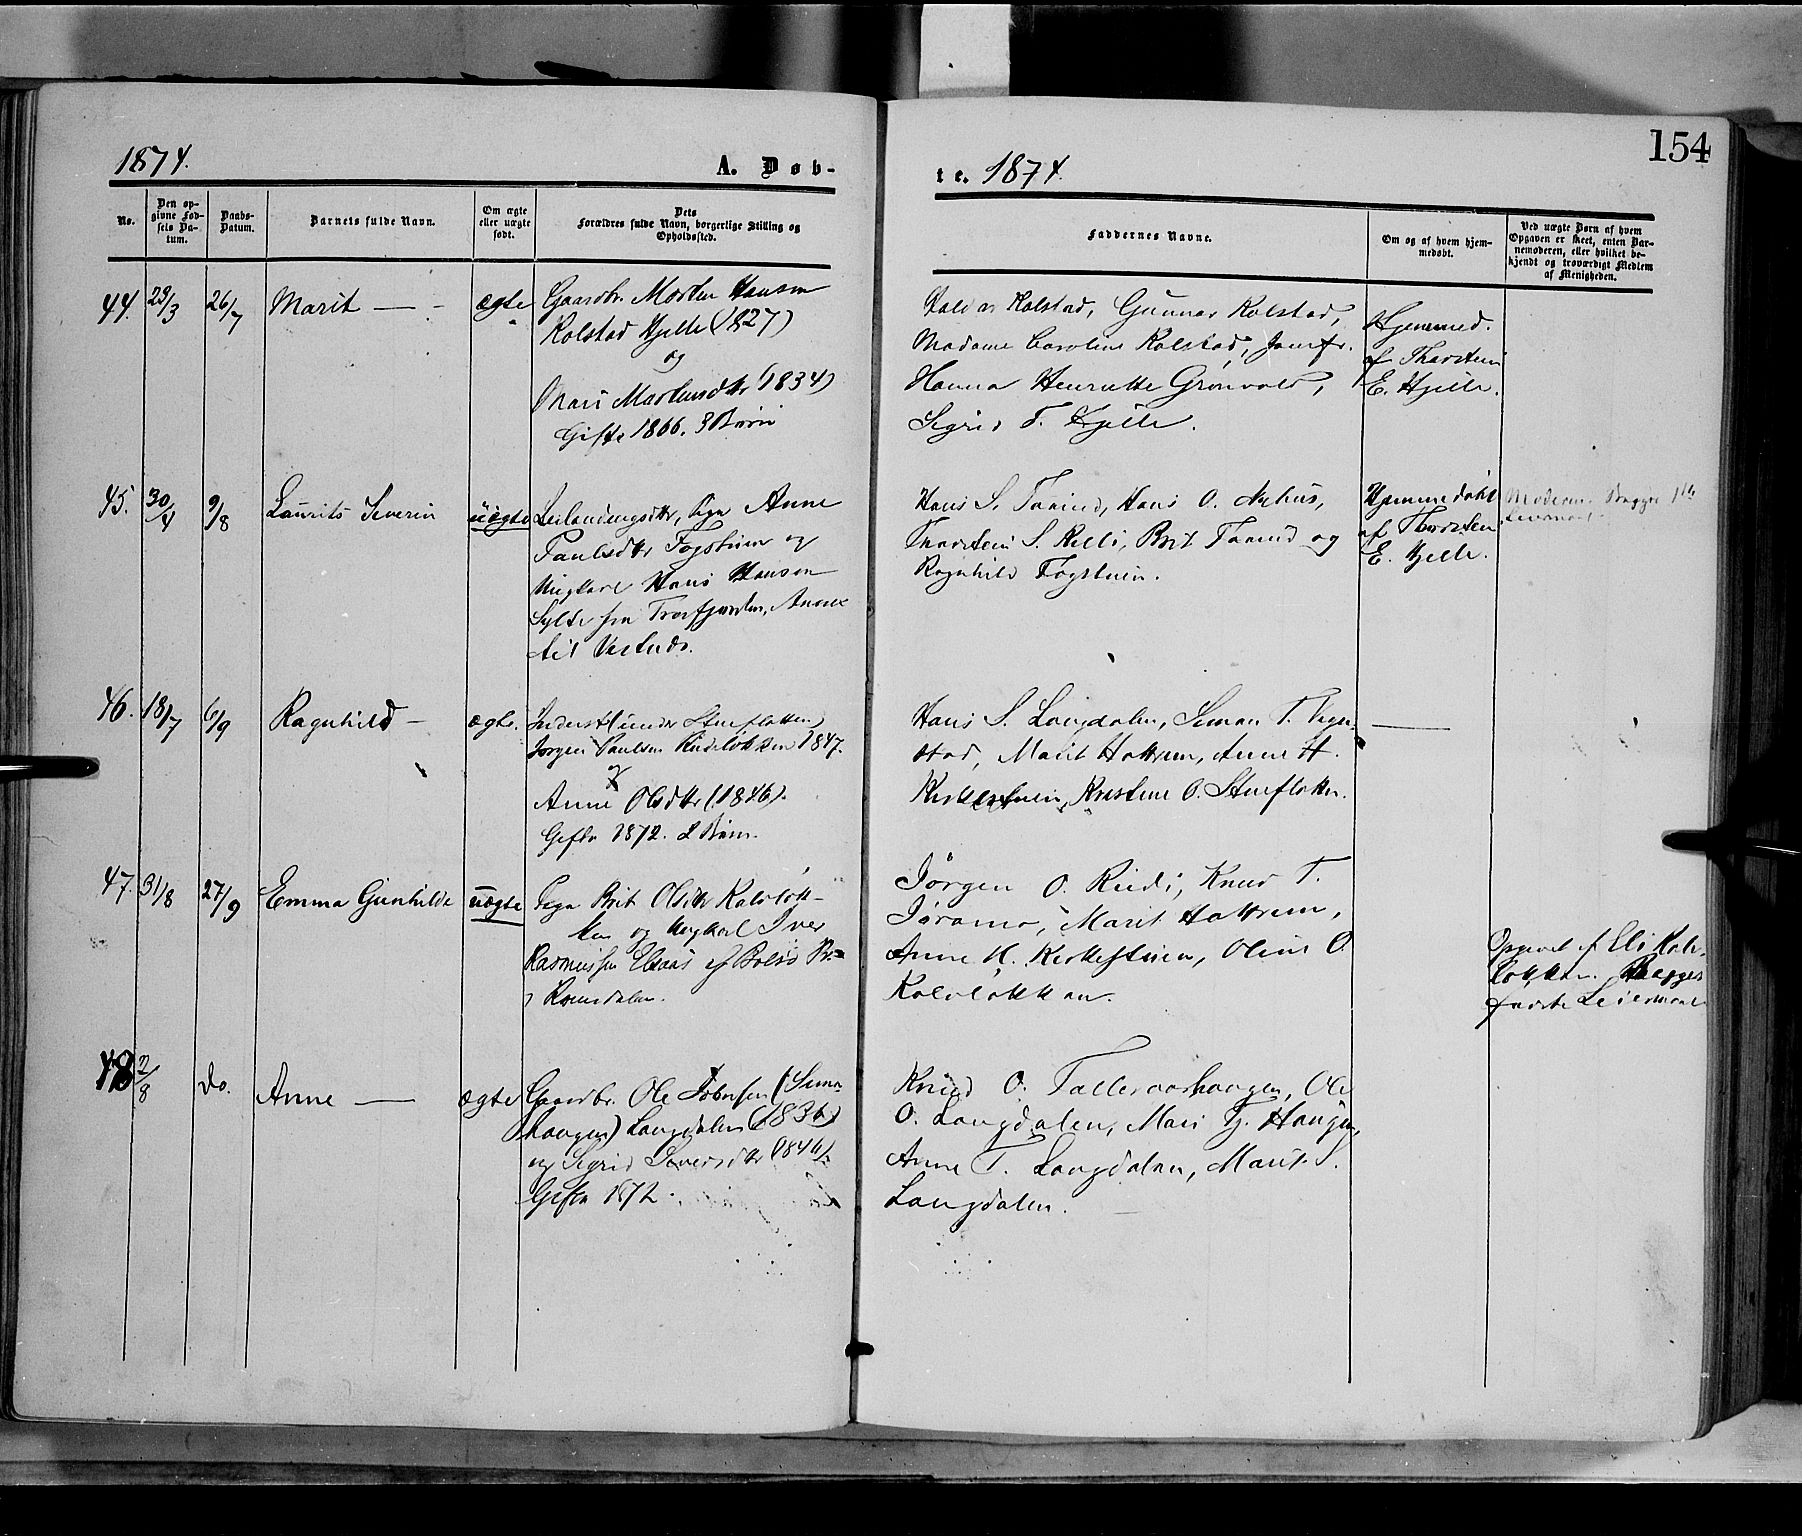 154
1874. A. Døb-
te. 1874.
No.
Den op-
givne Fød-
sels Da-
tum.
Daabs-
Datum.
Barnets fulde Navn.
Om ægte
eller uægte
født.
Dets
Forældres fulde Navn, borgerlige Stilling og
Opholdssted.
Faddernes Navne.
Om og af hvem hjem-
medøbt.
Ved uægte Børn af hvem
Opgaven er skeet, enten Bar-
nemoderen, eller hvilket be-
kjendt og troværdigt Medlem
af Menigheden.
44. 29/3 26/7 Marit — ægte Gaardbr. Morten Hansen
Kolstad Hjelle (1827)
og
Mari Mortensdtr (1834)
Gifte 1866. 3 Børn
Halvor Kolstad, Gunnar Kolstad,
Madame Caroline Kolstad, Jomfr.
Hanna Henriette Grønvold,
Sigrid T. Hjelle.
Hjemmed.
af Thorstein
E. Hjelle.
45. 30/4 9/8 Laurits Severin uægte Anne
Paulsdtr Fogstuen og
Ungkarl Hans Hansen
Sylte fra Tresfjorden, Annex
til Vestnæs.
Hans S. Hans O. Nyhus,
Thorstein S. Brit og
Ragnhild Fogstuen.
Hjemmedøbt
af Thorstein
E. Hjelle.
Moderen. Begges 1ste
Leiermaal
46. 18/7 6/9 Ragnhild — ægte. Inderst under
Jørgen Paulsen 1847.
og
Anne Olsdtr (1846).
Gifte 1872. 2 Børn.
Hans S. Langdalen, Simon T.
stad, Marit Hattrem, Anne H.
Kirkestuen, Kristine O.
47. 31/8 27/9 Emma Gunhilde uægte Pige Brit Olsdtr Kalvløk-
ken og Ungkarl Iver
Rasmussen af Bolsø
Romsdalen.
Jørgen O. Knud T.
Jøramo, Marit Hattrem,
Anne H. Kirkestuen, Oline O
Kalvløkken.
Opgivet af Eli Kalv-
løkken. Begges
første Leiermaal
48 2/8 do. Anne — ægte Gaardbr. Ole
haugen) Langdalen (1836)
og Sigrid Siversdtr (1846).
Gifte 1872.
Knud O. Talleraashaugen, Ole
O. Langdalen, Mari Haugen,
Anne T. Langdalen, Marit S.
Langdalen.